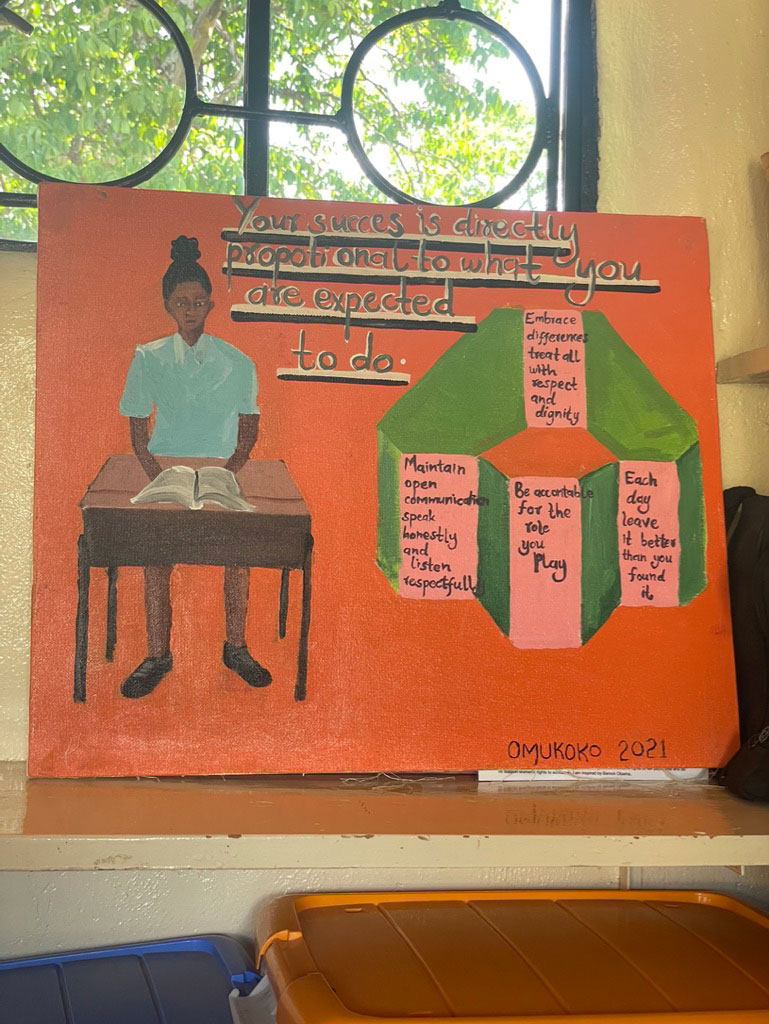 Your succes is directly
propotional to what you
are expected
to do.
Embrace
differences
treat all
with
respect
and
dignity
Maintain
open
communication
speak
honestly
and
listen
respectfully
Be accontable
for the
role
you
Play
Each
day
leave
it better
than you
found
it
OMUKOKO 2021